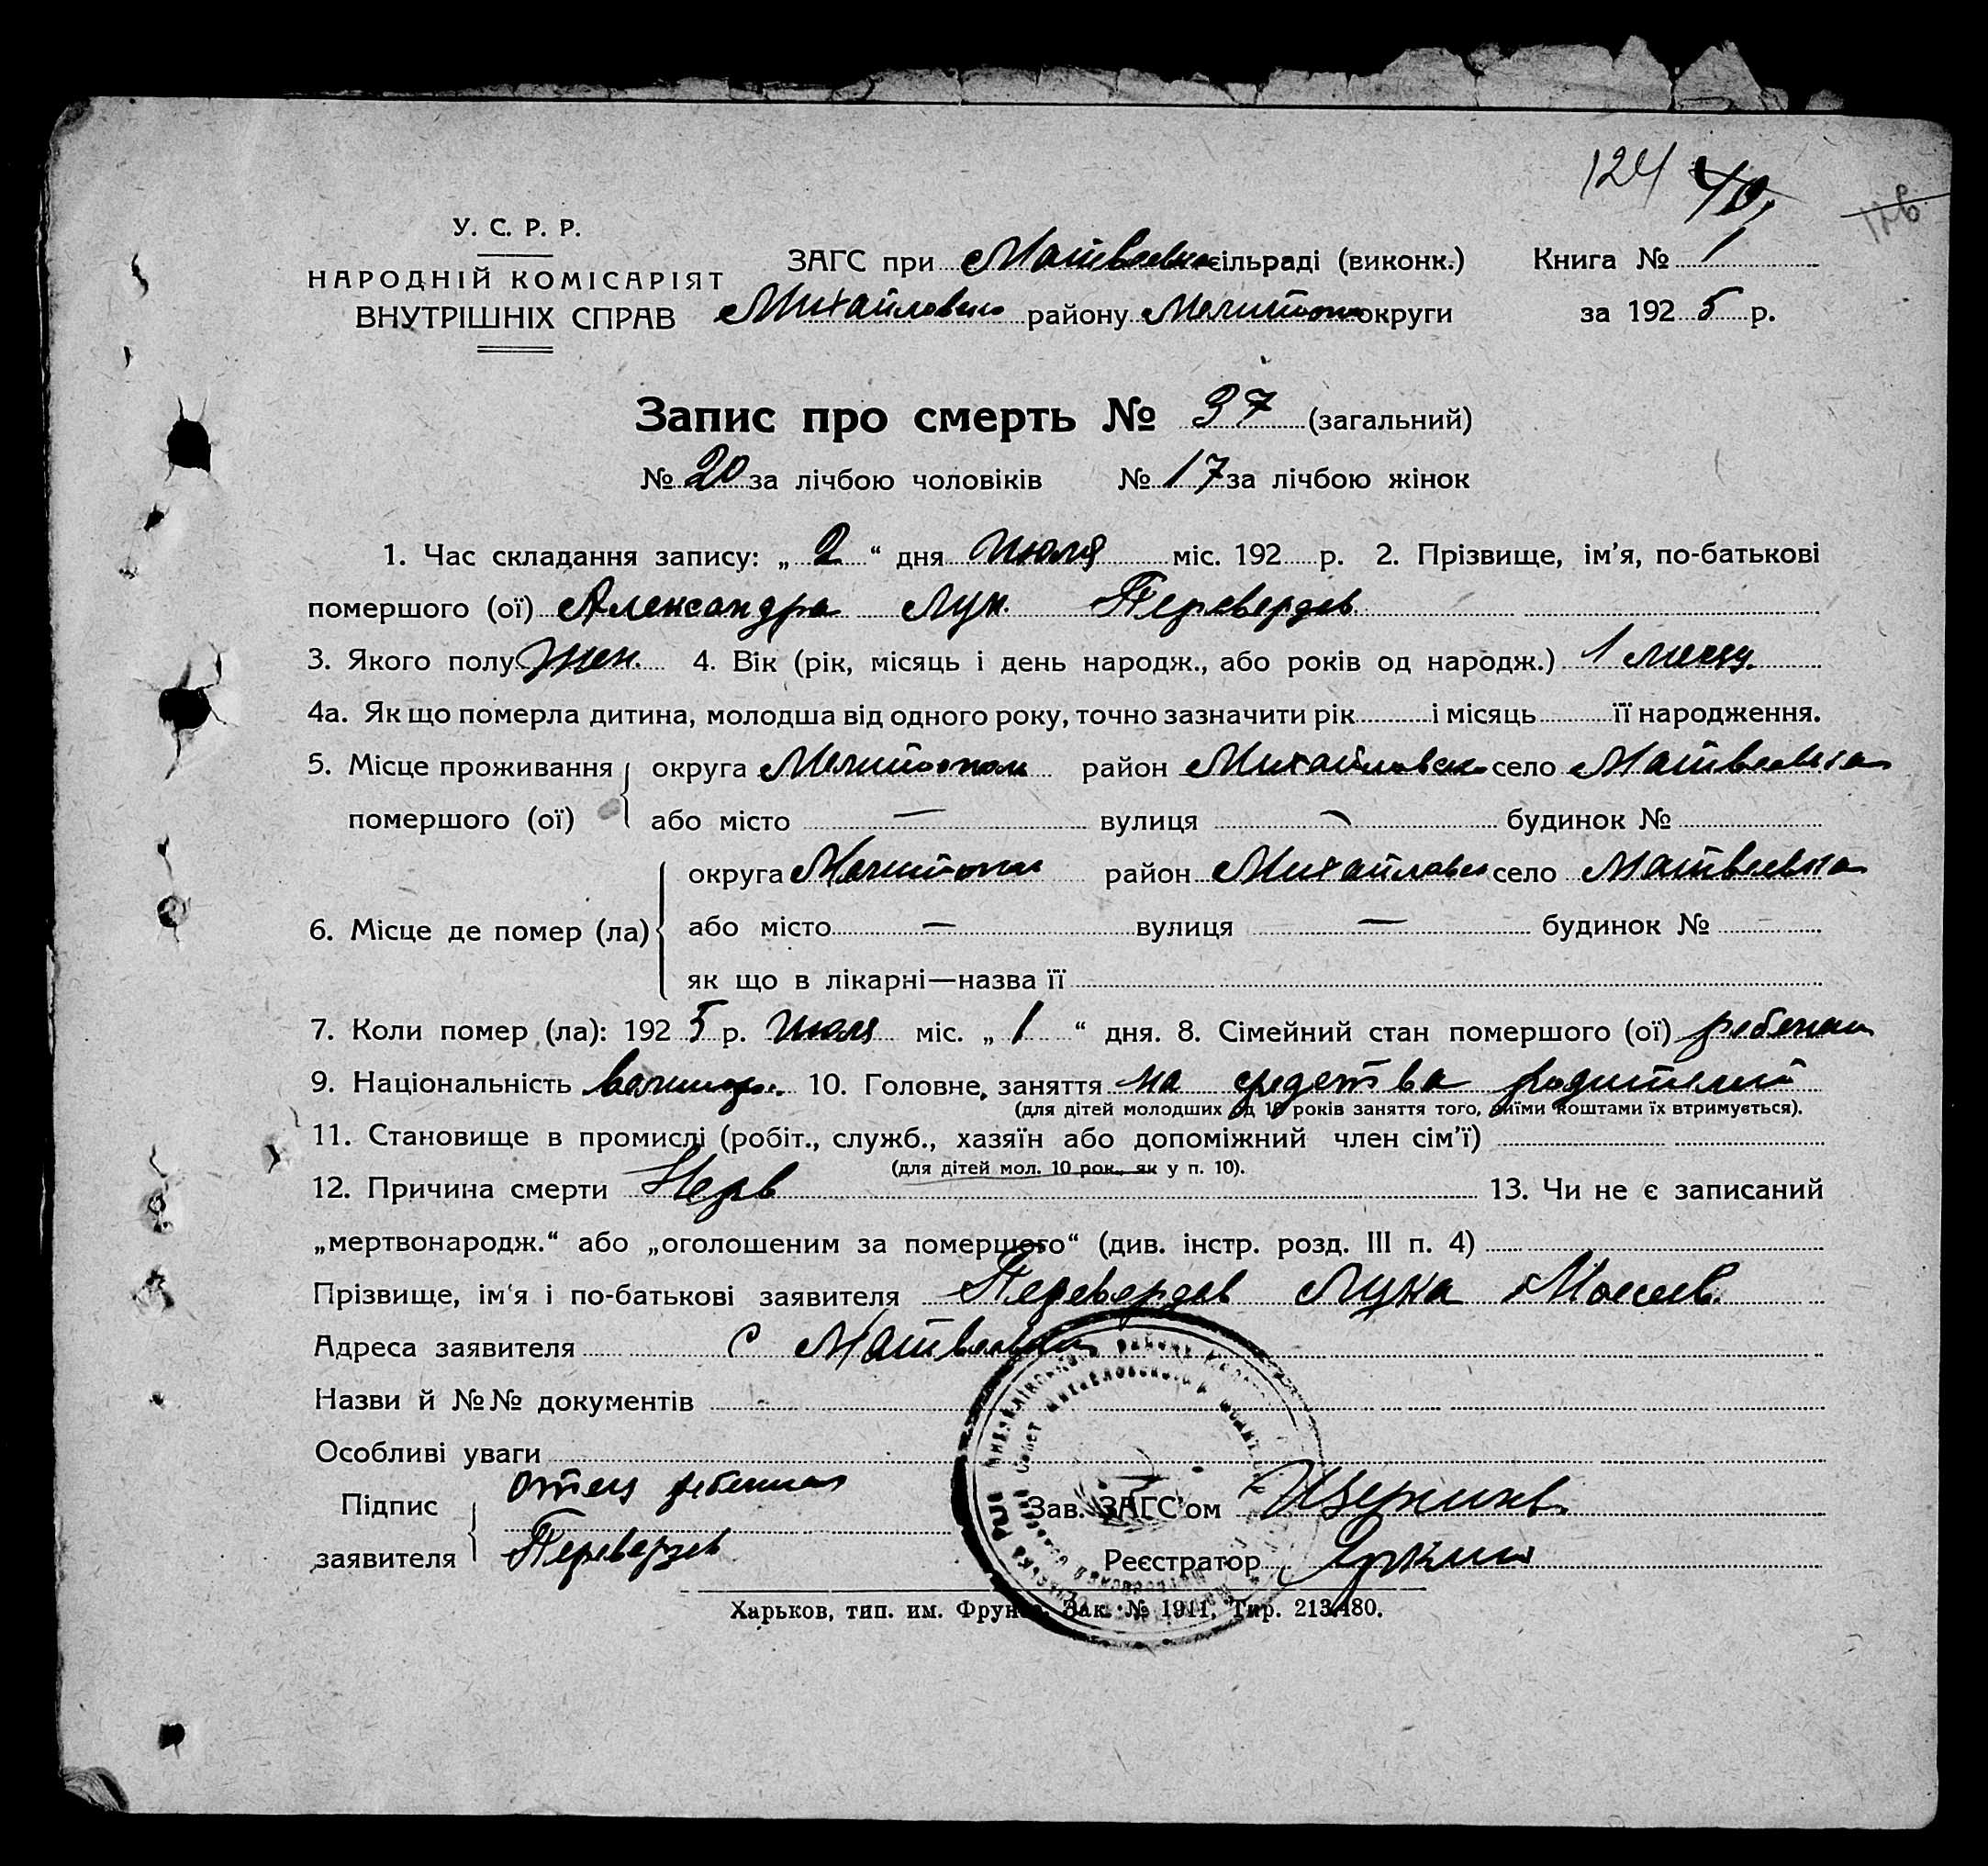 124 40,
У. С. Р. Р.
НАРОДНІЙ КОМІСАРІЯТ
ВНУТРІШНІХ СПРАВ
ЗАГС при Матвеевка сільраді (виконк.) Книга № 1
Михайловско району Мелитопол округи за 1925 р.
Запис про смерть № 37 (загальний)
№ 20 за лічбою чоловіків № 17 за лічбою жінок
1. Час складання запису: „2“ дня Июля міс. 192 р. 2. Прізвище, ім’я, по-батькові
помершого (ої) Александра Лук. Перевердев
3. Якого полу жен. 4. Вік (рік, місяць і день народж., або років од народж.) 1 месяц.
4а. Як що померла дитина, молодша від одного року, точно зазначити рік і місяць її народження.
5. Місце проживання помершого (ої) округа Мелитопол район Михайловск село Матвеевка
або місто — вулиця — будинок №
6. Місце де помер (ла) округа Мелитопол район Михайловск село Матвеевка
або місто — вулиця — будинок №
як що в лікарні—назва її
7. Коли помер (ла): 1925 р. Июля міс. „1“ дня. 8. Сімейний стан помершого (ої) ребенок
9. Національність 10. Головне, заняття на средства родителей
(для дітей молодших од 10 років заняття того, чиїми коштами їх втримується).
11. Становище в промислі (робіт., служб., хазяїн або допоміжний член сім’ї)
(для дітей мол. 10 рок., як у п. 10).
12. Причина смерти Нерв 13. Чи не є записаний
„мертвонародж.“ або „оголошеним за помершого“ (див. інстр. розд. III п. 4)
Прізвище, ім‘я і по-батькові заявителя Перевердев Лука Моисеев.
Адреса заявителя с Матвеевка
Назви й №№ документів
Особливі уваги
Підпис заявителя отец ребенка
Переверзев
Зав. ЗАГС’ом
Реєстратор
Харьков, тип. им. Фрунзе. Зак. № 1911. Тир. 213.480.